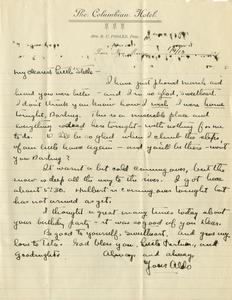 The Columbian Hotel.
My dearest Little Stella -
I have just phoned march and
heard you were better - and I'm so glad, Sweetheart.
I don't think you know how I wish I were home
tonight, Darling. This is a miserable place and
everything closed here tonight - with nothing for me
to do. I'll be so glad when I climb the steps
of our little house again - and you'll be there - wont
you Darling?
It wasn't but cold coming over, but the
snow is deep all the way to the river. I got here
about 5:30. Hulbert is coming over tonight but
has not arrived as yet.
I thought a great many times today about
your birthday party - it was so good of you Dear.
Be good to yourself, Sweetheart, and give my
love to Leta. God bless you, Little Partner, and
Goodnight.
Always and always,
Your Aldo